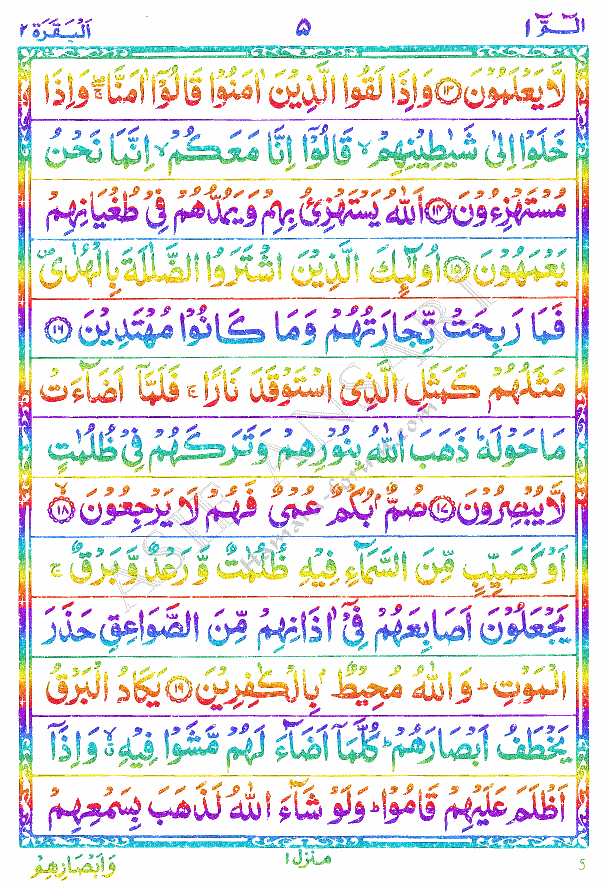 الٓمّٓ ١
٥
اَلْبَقَرَة ٢
لَّا يَعْلَمُوْنَ ۝١٣ وَاِذَا لَقُوا الَّذِيْنَ اٰمَنُوْا قَالُوْٓا اٰمَنَّا ۖۚ وَاِذَا
خَلَوْا اِلٰى شَيٰطِيْنِهِمْ ۙ قَالُوْٓا اِنَّا مَعَكُمْ ۙ اِنَّمَا نَحْنُ
مُسْتَهْزِءُوْنَ ۝١٤ اَللّٰهُ يَسْتَهْزِئُ بِهِمْ وَيَمُدُّهُمْ فِيْ طُغْيَانِهِمْ
يَعْمَهُوْنَ ۝١٥ اُولٰٓئِكَ الَّذِيْنَ اشْتَرَوُا الضَّلٰلَةَ بِالْهُدٰى ۪
فَمَا رَبِحَتْ تِّجَارَتُهُمْ وَمَا كَانُوْا مُهْتَدِيْنَ ۝١٦
مَثَلُهُمْ كَمَثَلِ الَّذِى اسْتَوْقَدَ نَارًا ۚ فَلَمَّآ اَضَآءَتْ
مَا حَوْلَهٗ ذَهَبَ اللّٰهُ بِنُوْرِهِمْ وَتَرَكَهُمْ فِيْ ظُلُمٰتٍ
لَّا يُبْصِرُوْنَ ۝١٧ صُمٌّۢ بُكْمٌ عُمْيٌ فَهُمْ لَا يَرْجِعُوْنَ ۝١٨ ۙ
اَوْ كَصَيِّبٍ مِّنَ السَّمَآءِ فِيْهِ ظُلُمٰتٌ وَّرَعْدٌ وَّبَرْقٌ ۚ
يَجْعَلُوْنَ اَصَابِعَهُمْ فِيْٓ اٰذَانِهِمْ مِّنَ الصَّوَاعِقِ حَذَرَ
الْمَوْتِ ؕ وَاللّٰهُ مُحِيْطٌۢ بِالْكٰفِرِيْنَ ۝١٩ يَكَادُ الْبَرْقُ
يَخْطَفُ اَبْصَارَهُمْ ؕ كُلَّمَآ اَضَآءَ لَهُمْ مَّشَوْا فِيْهِ ۙ وَاِذَآ
اَظْلَمَ عَلَيْهِمْ قَامُوْا ؕ وَلَوْ شَآءَ اللّٰهُ لَذَهَبَ بِسَمْعِهِمْ
ASIF ANSARI
منزل ١
وَاَبْصَارِهِمْ
5